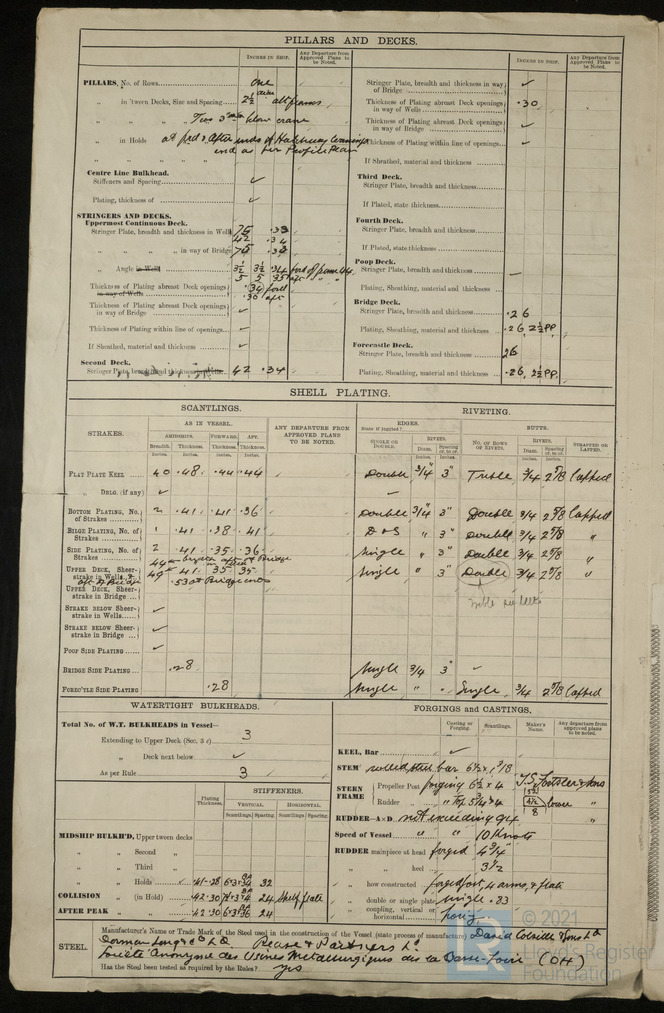 PILLARS AND DECKS.
INCHES IN SHIP. Any Departure from Approved Plans to be Noted.
PILLARS, No. of Rows one
„ in 'tween Decks, Size and Spacing 2½ dia alt frames
Two 3" below crane
„ in Holds at frd & after ends of Hatchway Coamings
and as per Profile Plan
Centre Line Bulkhead.
Stiffeners and Spacing ✓
Plating, thickness of ✓
STRINGERS AND DECKS.
Uppermost Continuous Deck.
Stringer Plate, breadth and thickness in Wells
42 .34
„ „ „ „ in way of Bridge
„ Angle in Wells 3½ 3½ .34
5 5
Thickness of Plating abreast Deck openings in way of Wells .34 ford
.30 aft
Thickness of Plating abreast Deck openings in way of Bridge ✓
Thickness of Plating within line of openings ✓
If Sheathed, material and thickness ✓
Second Deck.
Stringer Plate, breadth and thickness in Wells 42 .34
INCHES IN SHIP. Any Departure from Approved Plans to be Noted.
Stringer Plate, breadth and thickness in way of Bridge ✓
Thickness of Plating abreast Deck openings in way of Wells .30
Thickness of Plating abreast Deck openings in way of Bridge ✓
Thickness of Plating within line of openings ✓
If Sheathed, material and thickness
Third Deck.
Stringer Plate, breadth and thickness
If Plated, state thickness
Fourth Deck.
Stringer Plate, breadth and thickness
If Plated, state thickness
Poop Deck.
Stringer Plate, breadth and thickness –
Plating, Sheathing, material and thickness
Bridge Deck.
Stringer Plate, breadth and thickness .26
Plating, Sheathing, material and thickness .26 2½ PP.
Forecastle Deck.
Stringer Plate, breadth and thickness 26
Plating, Sheathing, material and thickness .26 2½ PP.
SHELL PLATING.
SCANTLINGS. RIVETING.
STRAKES. AS IN VESSEL. ANY DEPARTURE FROM APPROVED PLANS TO BE NOTED. EDGES. State if joggled? BUTTS.
AMIDSHIPS. FORWARD. AFT. SINGLE OR DOUBLE. RIVETS. NO. OF ROWS OF RIVETS. RIVETS. STRAPPED OR LAPPED.
Breadth. Thickness. Thickness. Thickness. Diam. Spacing cr. to cr. Diam. Spacing cr. to cr.
Inches. Inches. Inches. Inches. Inches. Inches. Inches. Inches.
FLAT PLATE KEEL 40 .48 .44 .44 Double 3/4" 3" Treble 3/4 2 5/8 lapped
„ DBLG. (if any) ✓
BOTTOM PLATING, No. of Strakes 2 .41 .41 .36 Double 3/4" 3" Double 3/4 2 5/8 Lapped
BILGE PLATING, No. of Strakes 1 .41 .38 .41 D & S „ 3" Double 3/4 2 5/8 „
SIDE PLATING, No. of Strakes 2 .41 .35 .36 Single „ 3" Double 3/4 2 5/8 „
UPPER DECK, Sheerstrake in Wells 49" .41 .35 .35 Single „ 3" Double 3/4 2 5/8 „
.53 at Bridge ends
UPPER DECK, Sheerstrake in Bridge
STRAKE BELOW Sheerstrake in Wells ✓
STRAKE BELOW Sheerstrake in Bridge ✓
POOP SIDE PLATING ✓
BRIDGE SIDE PLATING .28 Single 3/4 3" ✓
FORE'TLE SIDE PLATING .28 Single „ „ Single 3/4 2 5/8 Lapped
WATERTIGHT BULKHEADS.
Total No. of W.T. BULKHEADS in Vessel—
Extending to Upper Deck (Sec. 3 c) 3
„ Deck next below ✓
As per Rule 3
Plating Thickness. STIFFENERS.
VERTICAL. HORIZONTAL.
Scantlings Spacing Scantlings Spacing
MIDSHIP BULKH'D, Upper tween decks
„ „ Second „
„ „ Third „
„ „ Holds .41-.28 32
COLLISION „ (in Hold) .42-.30 24 Shelf plate
AFTER PEAK „ „ .42.30 24
FORGINGS and CASTINGS.
Casting or Forging. Scantlings. Maker's Name. Any departure from approved plans to be noted.
KEEL, Bar ✓
STEM rolled steel bar 6½ × 1 3/8
STERN FRAME Propeller Post forging 6½ × 4 T.S. Forster & Sons
Rudder „ „ lower „
RUDDER—A×D not exceeding 94
Speed of Vessel „ „ 10 Knots
RUDDER mainpiece at head forged 4 3/4"
„ „ heel 3½
„ how constructed forged post, 4 arms, & plate
„ double or single plate single .83
„ coupling, vertical or horizontal horiz.
STEEL. Manufacturer's Name or Trade Mark of the Steel used in the construction of the Vessel (state process of manufacture) David Colville & Sons Ld
Dorman Long & Co Ld Pease & Partners Ld
Société Anonyme des Usines Métallurgiques de la Basse-Loire (OH)
Has the Steel been tested as required by the Rules? yes
© 2021
Lloyd's Register
Foundation